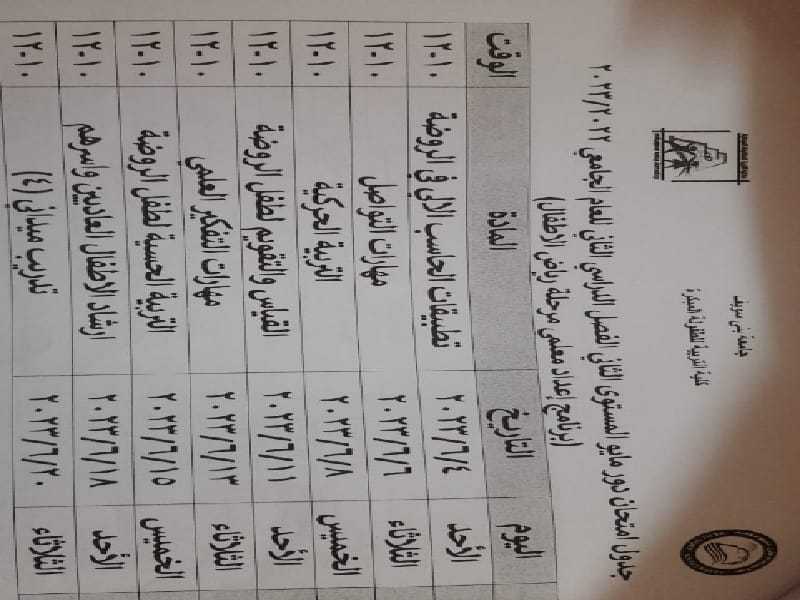 جامعة بني سويف
كلية التربية للطفولة المبكرة
جدول امتحان دور مايو المستوى الثاني الفصل الدراسي الثاني للعام الجامعي ٢٠٢٣/٢٠٢٢
(برنامج إعداد معلمي مرحلة رياض الاطفال)
اليوم التاريخ المادة الوقت
الأحد ٢٠٢٣/٦/٤ تطبيقات الحاسب الالي في الروضة ١٢-١٠
الثلاثاء ٢٠٢٣/٦/٦ مهارات التواصل ١٢-١٠
الخميس ٢٠٢٣/٦/٨ التربية الحركية ١٢-١٠
الأحد ٢٠٢٣/٦/١١ القياس والتقويم لطفل الروضة ١٢-١٠
الثلاثاء ٢٠٢٣/٦/١٣ مهارات التفكير العلمي ١٢-١٠
الخميس ٢٠٢٣/٦/١٥ التربية الحسية لطفل الروضة ١٢-١٠
الأحد ٢٠٢٣/٦/١٨ ارشاد الاطفال العاديين واسرهم ١٢-١٠
الثلاثاء ٢٠٢٣/٦/٢٠ تدريب ميداني (٤) ١٢-١٠